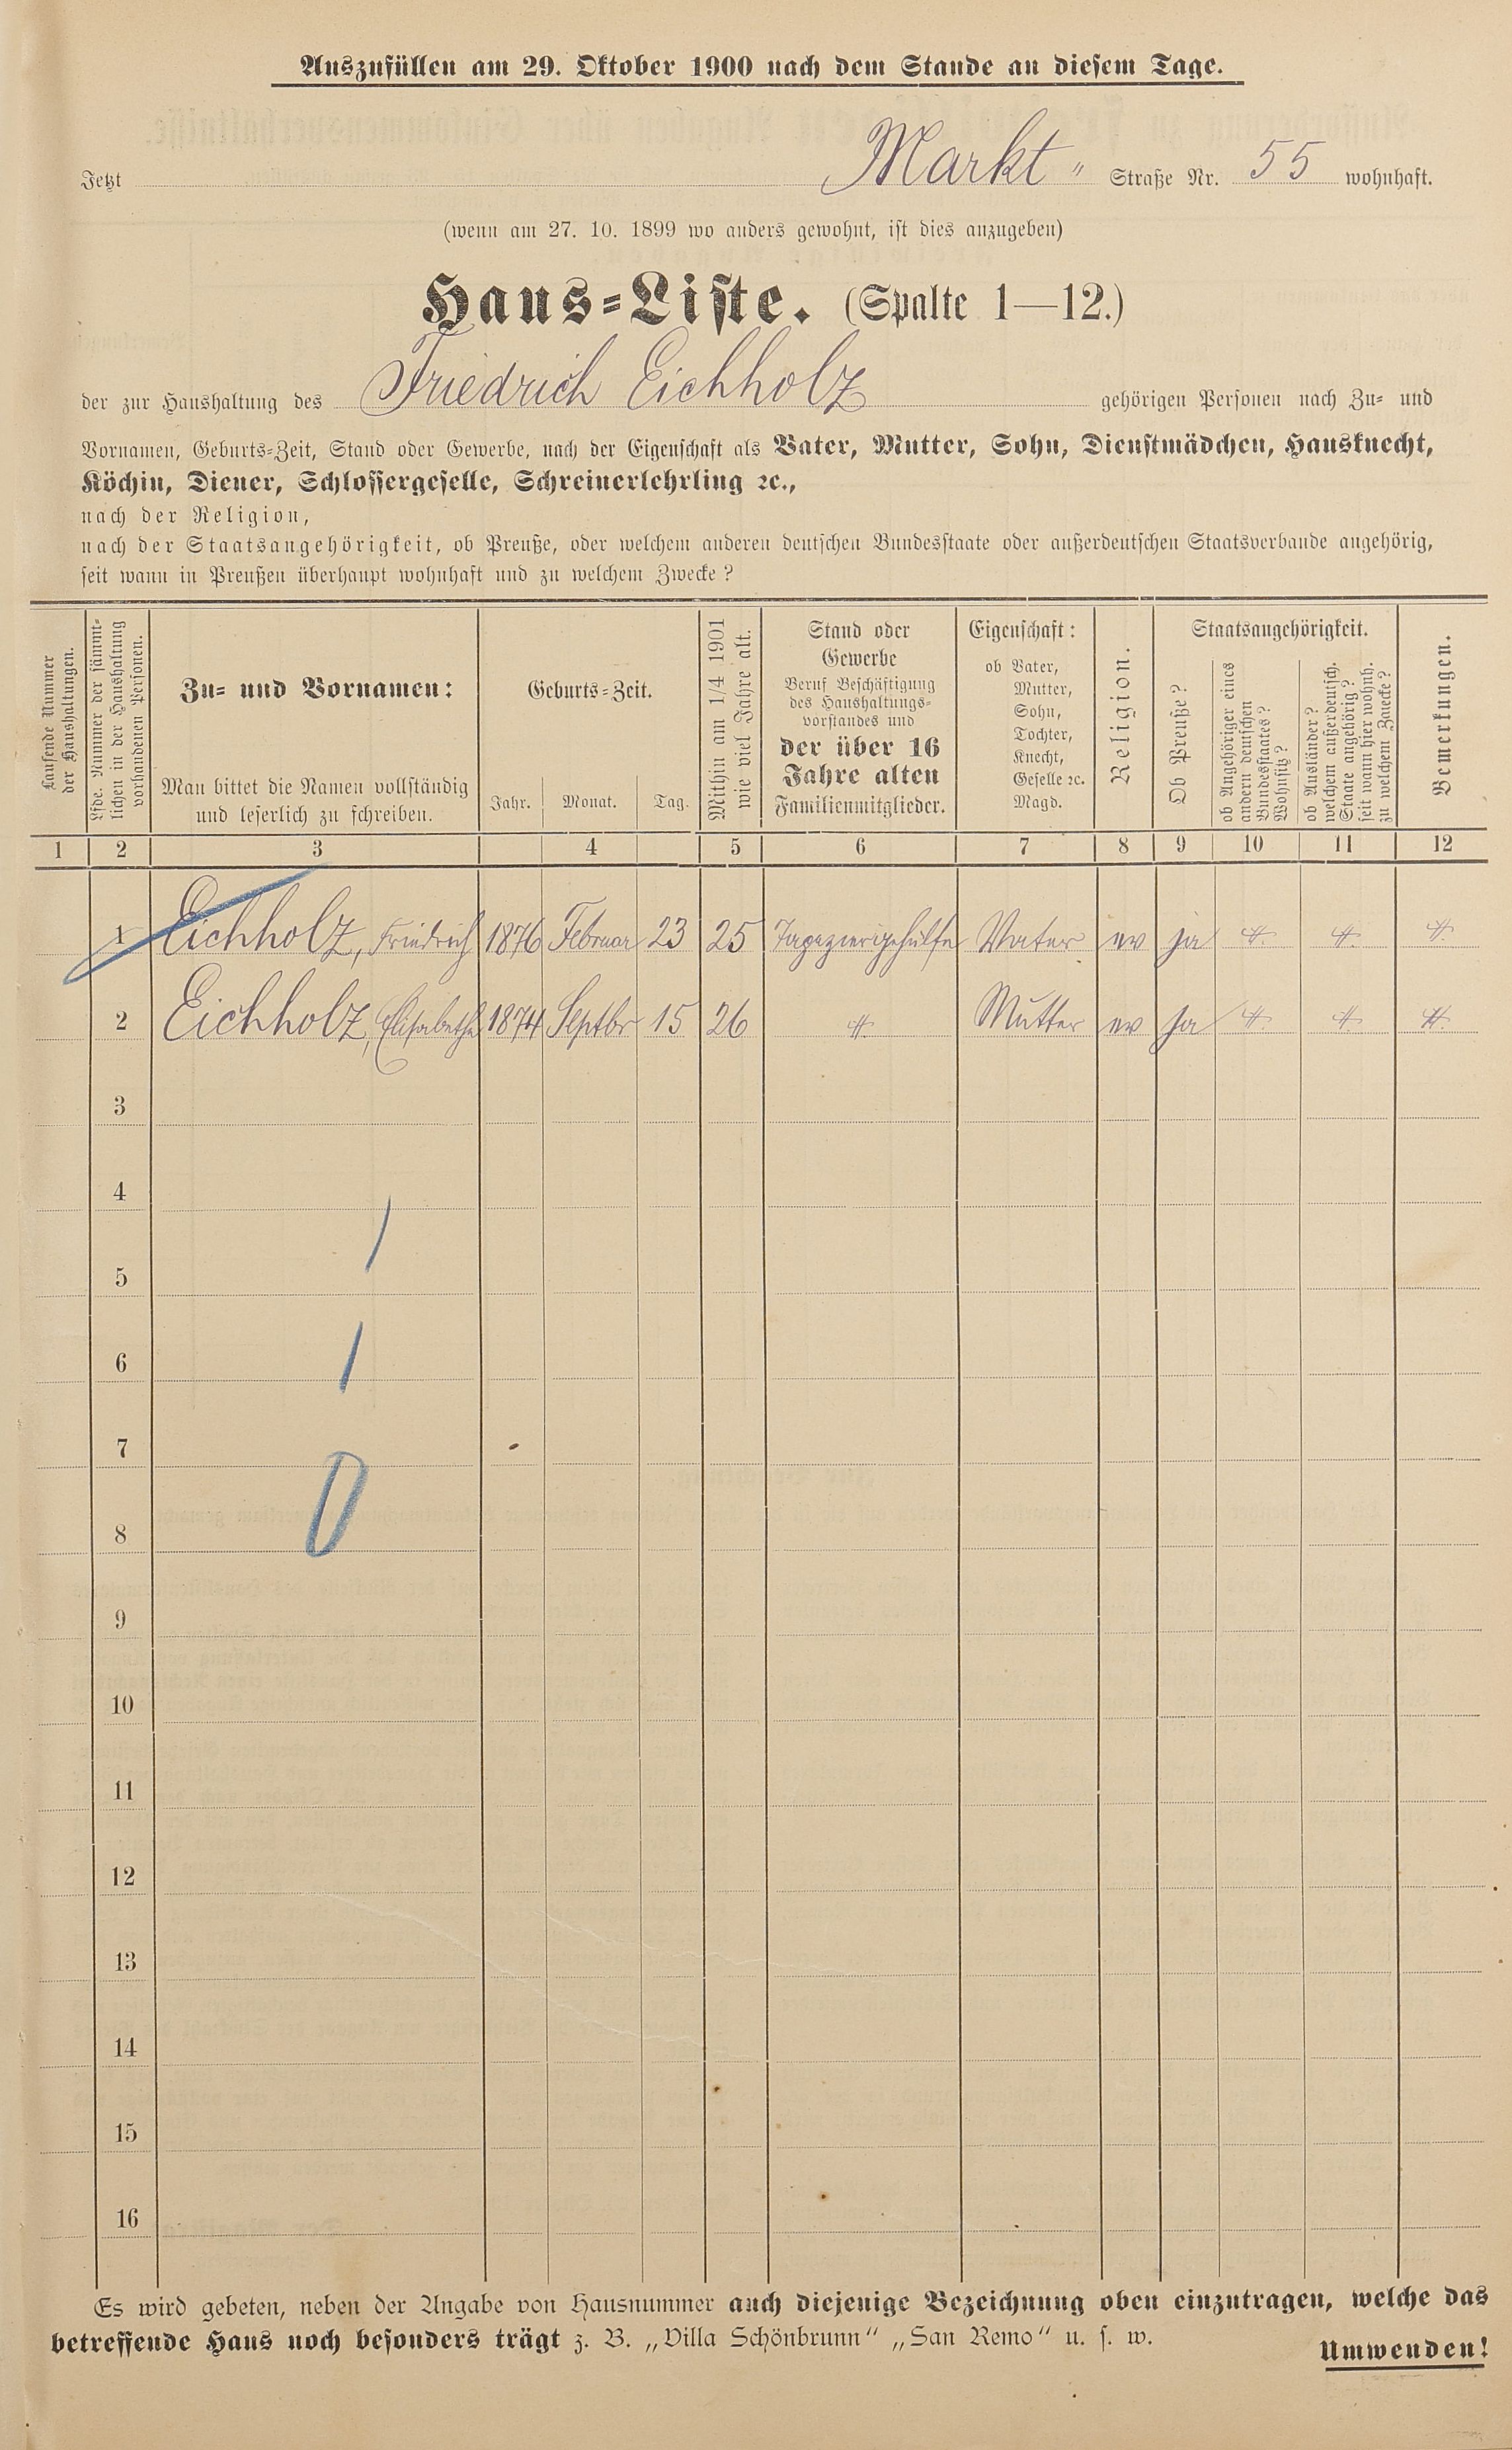 Auszufüllen am 29. Oktober 1900 nach dem Stande an diesem Tage.
Jetzt Markt " Straße Nr. 55 wohnhaft.
(wenn am 27. 10. 1899 wo anders gewohnt, ist dies anzugeben)
Haus=Liste. (Spalte 1—12.)
der zur Haushaltung des Friedrich Eichholz gehörigen Personen nach Zu= und
Vornamen, Geburts=Zeit, Stand oder Gewerbe, nach der Eigenschaft als Vater, Mutter, Sohn, Dienstmädchen, Hausknecht,
Köchin, Diener, Schlossergeselle, Schreinerlehrling ꝛc.,
nach der Religion,
nach der Staatsangehörigkeit, ob Preuße, oder welchem anderen deutschen Bundesstaate oder außerdeutschen Staatsverbande angehörig,
seit wann in Preußen überhaupt wohnhaft und zu welchem Zwecke?
Laufende Nummer
der Haushaltungen.
Lfde. Nummer der sämmt=
lichen in der Haushaltung
vorhandenen Personen.
Zu= und Vornamen:
Man bittet die Namen vollständig
und leserlich zu schreiben.
Geburts=Zeit.
Jahr. Monat. Tag.
Mithin am 1/4 1901
wie viel Jahre alt.
Stand oder
Gewerbe
Beruf Beschäftigung
des Haushaltungs=
vorstandes und
der über 16
Jahre alten
Familienmitglieder.
Eigenschaft:
ob Vater,
Mutter,
Sohn,
Tochter,
Knecht,
Geselle ꝛc.
Magd.
Religion.
Staatsangehörigkeit.
Ob Preuße?
ob Angehöriger eines
andern deutschen
Bundesstaates?
Wohnsitz?
ob Ausländer?
welchem außerdeutsch.
Staate angehörig?
seit wann hier wohnh.
zu welchem Zwecke?
Bemerkungen.
1 2 3 4 5 6 7 8 9 10 11 12
1 Eichholz, Friedrich 1876 Februar 23 25 Tapeziergehülfe Vater ev ja
2 Eichholz, Elisabethe 1874 Septbr 15 26 Mutter ev ja
3
4
5
6
7
8
9
10
11
12
13
14
15
16
Es wird gebeten, neben der Angabe von Hausnummer auch diejenige Bezeichnung oben einzutragen, welche das
betreffende Haus noch besonders trägt z. B. „Villa Schönbrunn" „San Remo" u. s. w.
Umwenden!